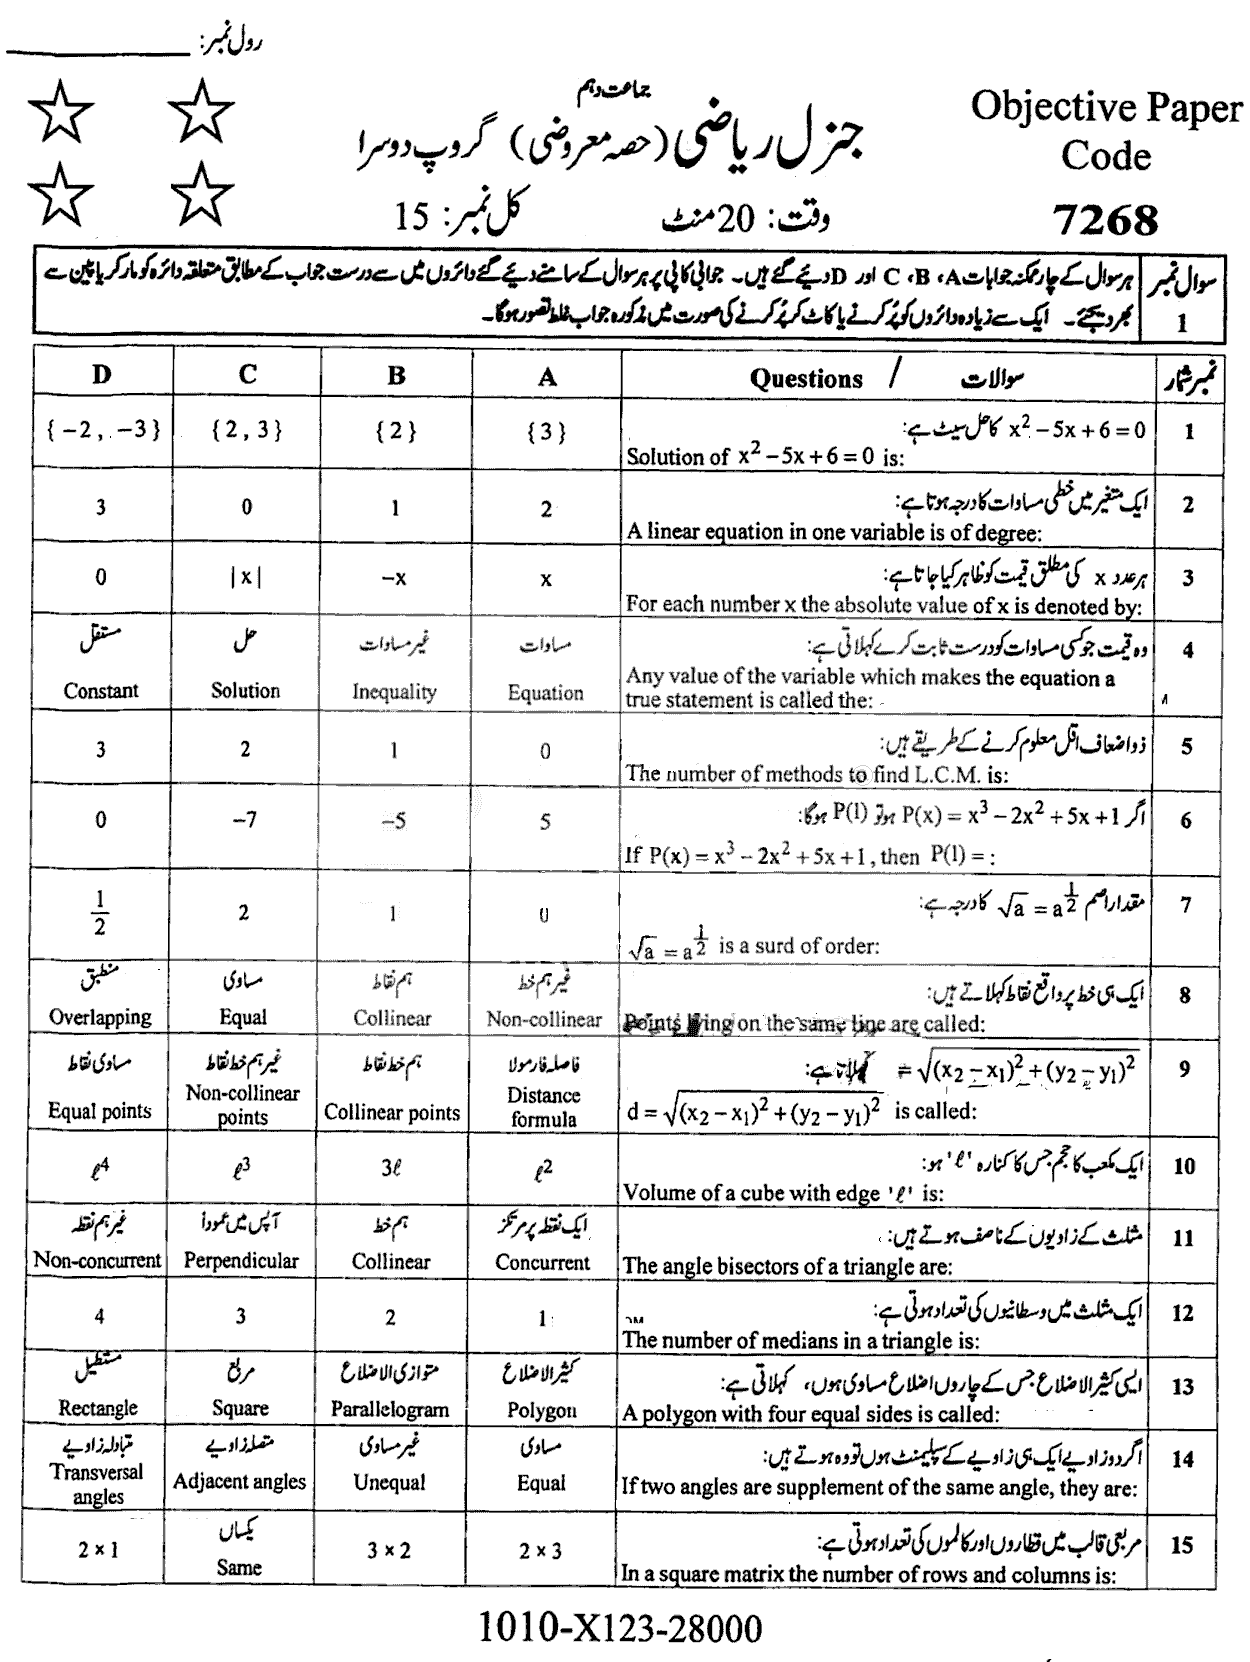 رول نمبر: ____________
جماعت دہم
جنرل ریاضی (حصہ معروضی) گروپ دوسرا
وقت: 20 منٹ کل نمبر: 15
Objective Paper
Code
7268
سوال نمبر 1
ہر سوال کے چار ممکنہ جوابات A، B، C اور D دیئے گئے ہیں۔ جوابی کاپی پر ہر سوال کے سامنے دیئے گئے دائروں میں سے درست جواب کے مطابق متعلقہ دائرہ کو مارکر یا پین سے
بھر دیجئے۔ ایک سے زیادہ دائروں کو پُر کرنے یا کاٹ کر پُر کرنے کی صورت میں مذکورہ جواب غلط تصور ہوگا۔
نمبر شمار سوالات / Questions A B C D
1 x² – 5x + 6 = 0 کا حل سیٹ ہے:
Solution of x² – 5x + 6 = 0 is:
{3} {2} {2, 3} {-2, -3}
2 ایک متغیر میں خطی مساوات کا درجہ ہوتا ہے:
A linear equation in one variable is of degree:
2 1 0 3
3 ہر عدد x کی مطلق قیمت کو ظاہر کیا جاتا ہے:
For each number x the absolute value of x is denoted by:
x –x |x| 0
4 وہ قیمت جو کسی مساوات کو درست ثابت کرے کہلاتی ہے:
Any value of the variable which makes the equation a
true statement is called the:
مساوات غیر مساوات حل مستقل
Equation Inequality Solution Constant
5 ذواضعاف اقل معلوم کرنے کے طریقے ہیں:
The number of methods to find L.C.M. is:
0 1 2 3
6 اگر P(x) = x³ – 2x² + 5x + 1 ہو تو P(1) ہوگا:
If P(x) = x³ – 2x² + 5x + 1, then P(1) = :
5 –5 –7 0
7 مقدار اصم √a = a^(1/2) کا درجہ ہے:
√a = a^(1/2) is a surd of order:
0 1 2 1/2
8 ایک ہی خط پر واقع نقاط کہلاتے ہیں:
Points lying on the same line are called:
غیر ہم خط ہم نقاط مساوی منطبق
Non-collinear Collinear Equal Overlapping
9 = √((x₂ – x₁)² + (y₂ – y₁)²) کہلاتا ہے:
d = √((x₂ – x₁)² + (y₂ – y₁)²) is called:
فاصلہ فارمولا ہم خط نقاط غیر ہم خط نقاط مساوی نقاط
Distance formula Collinear points Non-collinear points Equal points
10 ایک مکعب کا حجم جس کا کنارہ 'ℓ' ہو:
Volume of a cube with edge 'ℓ' is:
ℓ² 3ℓ ℓ³ ℓ⁴
11 مثلث کے زاویوں کے ناصف ہوتے ہیں:
The angle bisectors of a triangle are:
ایک نقطہ پر مرتکز ہم خط آپس میں عموداً غیر ہم نقطہ
Concurrent Collinear Perpendicular Non-concurrent
12 ایک مثلث میں وسطانیوں کی تعداد ہوتی ہے:
The number of medians in a triangle is:
1 2 3 4
13 ایسی کثیر الاضلاع جس کے چاروں اضلاع مساوی ہوں، کہلاتی ہے:
A polygon with four equal sides is called:
کثیر الاضلاع متوازی الاضلاع مربع مستطیل
Polygon Parallelogram Square Rectangle
14 اگر دو زاویے ایک ہی زاویے کے سپلیمنٹ ہوں تو وہ ہوتے ہیں:
If two angles are supplement of the same angle, they are:
مساوی غیر مساوی متصلہ زاویے متبادلہ زاویے
Equal Unequal Adjacent angles Transversal angles
15 مربعی قالب میں قطاروں اور کالموں کی تعداد ہوتی ہے:
In a square matrix the number of rows and columns is:
2 × 3 3 × 2 یکساں Same 2 × 1
1010-X123-28000